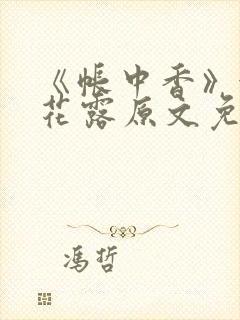 《帐中香》
花露原文免
冯哲